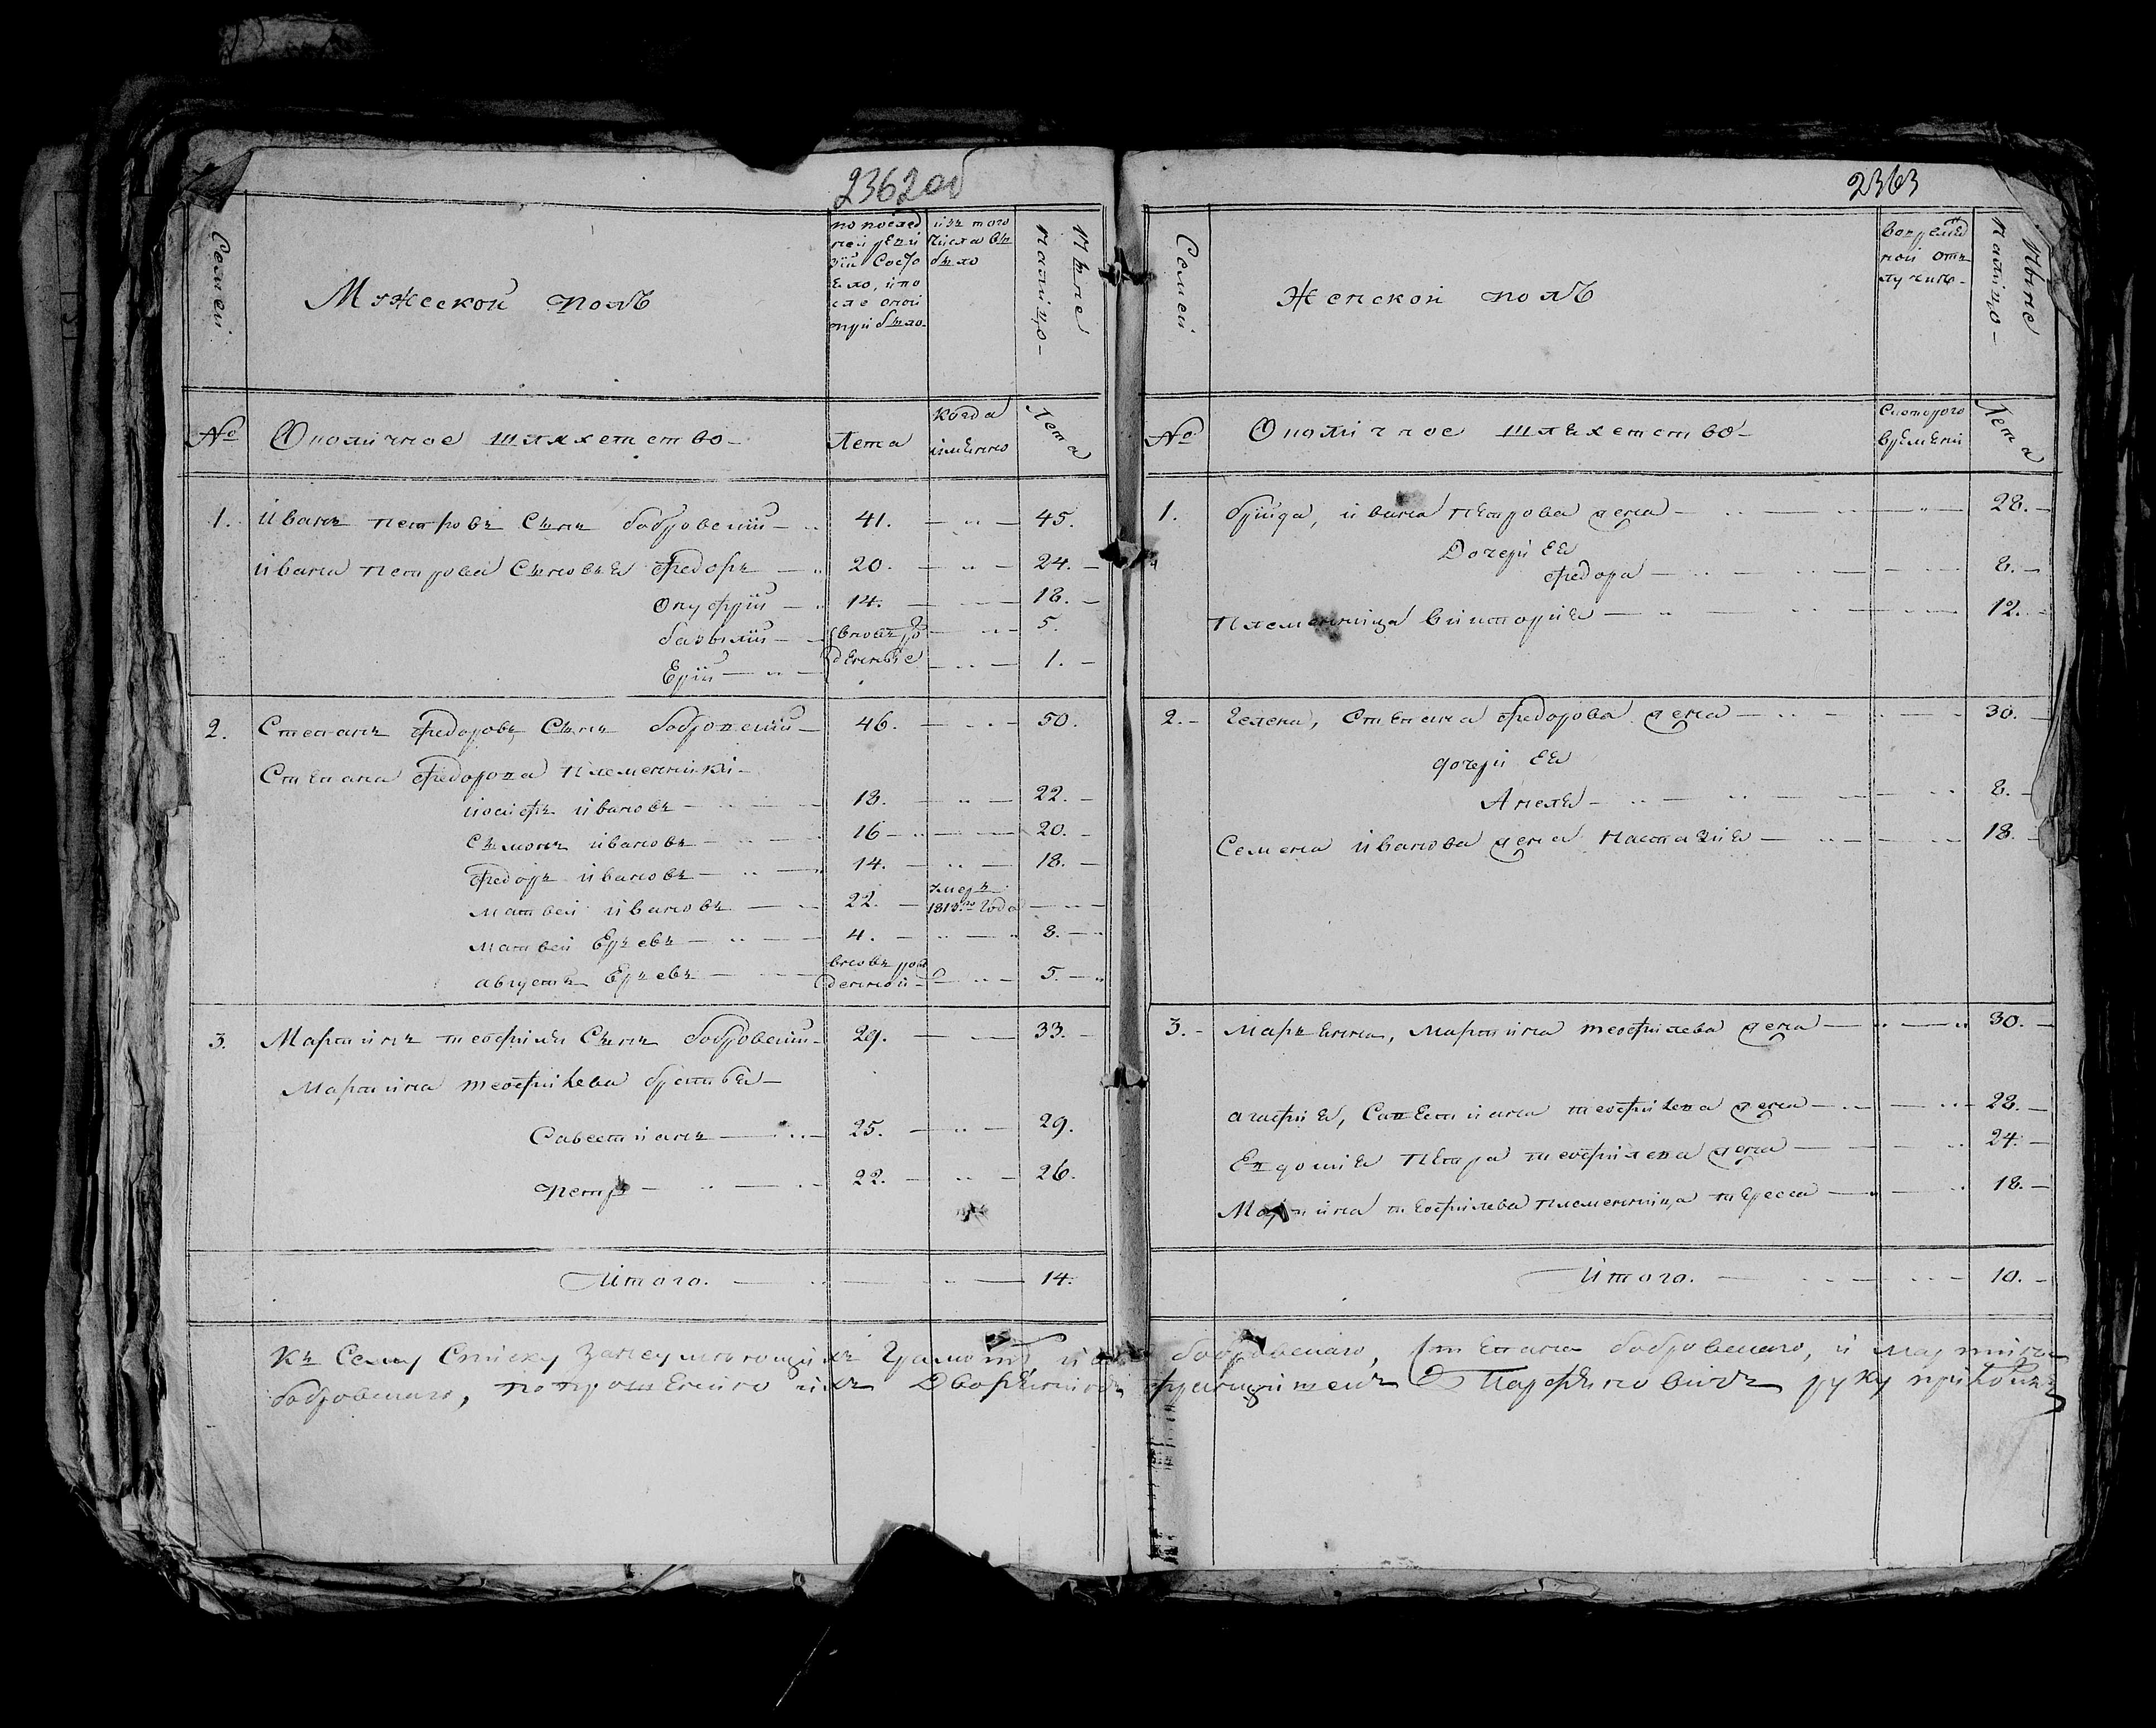 2362об
Семеи
Мужескои полъ
по послед
ней реви
зіи состо
яло, и по
сле оной
прибыло
изъ того
числа вы
было
Ныне
налицо
№
Околичное шляхетство
Лета
когда
именно
Лета
1. Иванъ петровъ Сынъ бобровскіи 41. 45.
Ивана петрова Сыновья Федоръ 20. 24.
Онуфріи 14. 18.
базыліи вновь ро 5.
Юріи жденные 1.
2. Степанъ Федоровъ Сынъ бобровскіи 46. 50.
Степана Федорова племенники
иосифъ ивановъ 18. 22.
Сымонъ ивановъ 16 20.
Федоръ ивановъ 14. 18.
матвеи ивановъ 22. умеръ
года
матвеи Юрьевъ 4. 8.
августъ Юрьевъ вновь рож
денной 5.
3. Мартинъ теофила Сынъ бобровскіи 29. 33.
Мартина теофилева братья
Савестианъ 25. 29.
петръ 22. 26.
Итого. 14.
2363
Семеи
Женскои полъ
во времен
ной отъ
лучке
Ныне
налицо
№
Околичное шляхетство
Скоторого
времени
Лета
1. бригда, ивана петрова жена 28.
Дочери ея
Федора 8.
племянница викторія 12.
2. Гелена, Степана Федорова жена 30.
дочери ея
Анеля 8.
Семена иванова жена настазія 18.
3. Марьянна, Мартина теофилева жена 30.
агафия, Савестиана теофилева жена 28.
Евдокия петра теофилева жена 24.
Мартина теофилева племенница тересса 18.
Итого. 10.
Къ Сему Списку неумеющихъ Грамоте, бобровскаго, Степана бобровскаго, и мартина
бобровскаго, по прошенію ихъ Дворянинъ руку приложилъ